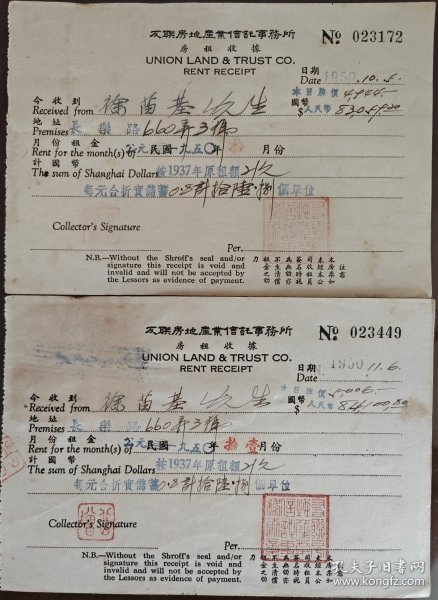 友聯房地產業信託事務所
房租收據
UNION LAND & TRUST CO.
RENT RECEIPT
No. 023172
日期
Date 1950.10.5.
今收到
Received from 徐苗基先生
本日牌價 4944.-
國幣
人民幣
地址
Premises 長樂路660弄3號
月份租金
Rent for the month(s) of 公元民國一九五〇年 拾 月份
計國幣
The sum of Shanghai Dollars 按1937年原租額21元
每元合折實儲蓄0.8計拾陸.捌個單位
Collector's Signature
Per
N.B.—Without the Shroff's seal and/or
signature this receipt is void and
invalid and will not be accepted by
the Lessors as evidence of payment.
注意
友聯房地產業信託事務所
房租收據
UNION LAND & TRUST CO.
RENT RECEIPT
No. 023449
日期
Date 1950.11.6.
今收到
Received from 徐苗基先生
本日牌價 5006.-
國幣
人民幣
地址
Premises 長樂路660弄3號
月份租金
Rent for the month(s) of 公元民國一九五〇年 拾壹月份
計國幣
The sum of Shanghai Dollars 按1937年原租額21元
每元合折實儲蓄0.8計拾陸.捌個單位
Collector's Signature
Per
N.B.—Without the Shroff's seal and/or
signature this receipt is void and
invalid and will not be accepted by
the Lessors as evidence of payment.
孔夫子旧书网
www.kongfz.com